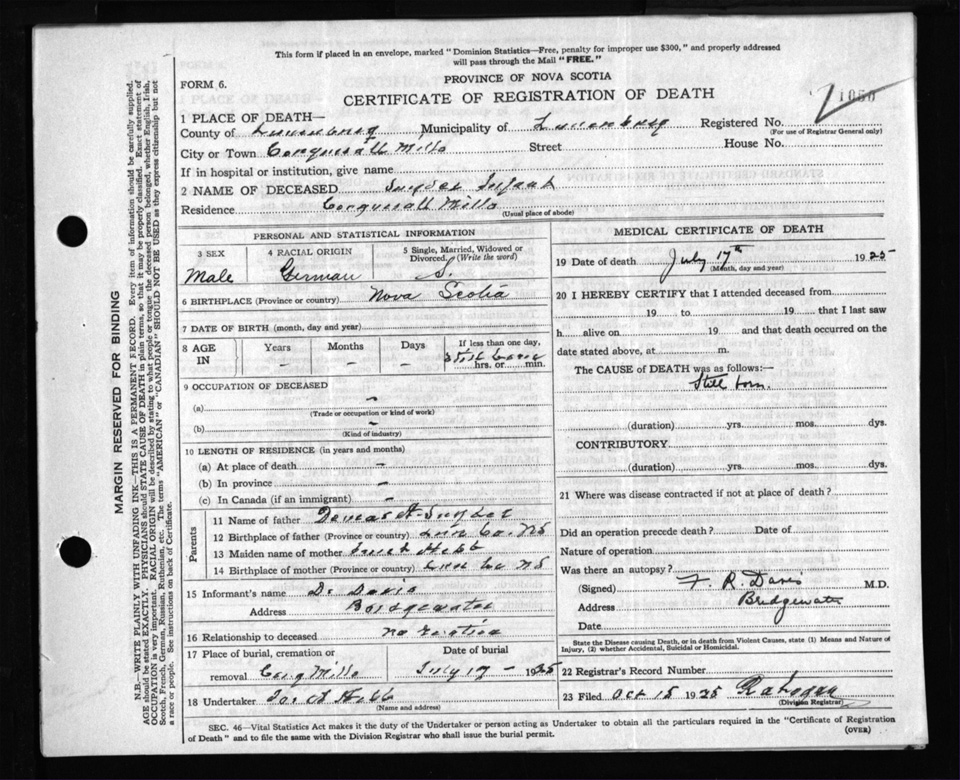 This form if placed in an envelope, marked "Dominion Statistics—Free, penalty for improper use $300," and properly addressed
will pass through the Mail "FREE."
PROVINCE OF NOVA SCOTIA
FORM 6.
CERTIFICATE OF REGISTRATION OF DEATH
1050
1 PLACE OF DEATH—
County of Lunenburg Municipality of Lunenburg Registered No.
(For use of Registrar General only)
City or Town Conquerall Mills Street House No.
If in hospital or institution, give name
2 NAME OF DECEASED Snyder Infant
Residence Conquerall Mills
(Usual place of abode)
PERSONAL AND STATISTICAL INFORMATION
3 SEX 4 RACIAL ORIGIN 5 Single, Married, Widowed or
Divorced. (Write the word)
Male German S.
6 BIRTHPLACE (Province or country) Nova Scotia
7 DATE OF BIRTH (month, day and year)
8 AGE IN Years Months Days If less than one day,
– – – Still born
hrs. or min.
9 OCCUPATION OF DECEASED
(a) –
(Trade or occupation or kind of work)
(b) –
(Kind of industry)
10 LENGTH OF RESIDENCE (in years and months)
(a) At place of death –
(b) In province –
(c) In Canada (if an immigrant) –
Parents
11 Name of father Snyder
12 Birthplace of father (Province or country) Lun Co. NS
13 Maiden name of mother Hebb
14 Birthplace of mother (Province or country) Lun Co NS
15 Informant's name Dr Davis
Address Bridgewater
16 Relationship to deceased no relation
17 Place of burial, cremation or Date of burial
removal Conq Mills July 17 – 1925
18 Undertaker Hebb
(Name and address)
MEDICAL CERTIFICATE OF DEATH
19 Date of death July 17th 1925
(Month, day and year)
20 I HEREBY CERTIFY that I attended deceased from
19 to 19 that I last saw
h alive on 19 and that death occurred on
date stated above, at m.
The CAUSE of DEATH was as follows:—
Still born.
(duration) yrs. mos. dys.
CONTRIBUTORY
(duration) yrs. mos. dys.
21 Where was disease contracted if not at place of death?
Did an operation precede death? Date of
Nature of operation
Was there an autopsy?
(Signed) F. R. Davis M.D.
Address Bridgewater
Date
State the Disease causing Death, or in death from Violent Causes, state (1) Means and Nature of
Injury, (2) whether Accidental, Suicidal or Homicidal.
22 Registrar's Record Number
23 Filed Oct 15 1925
(Division Registrar)
SEC. 46—Vital Statistics Act makes it the duty of the Undertaker or person acting as Undertaker to obtain all the particulars required in the "Certificate of Registration
of Death" and to file the same with the Division Registrar who shall issue the burial permit.
(OVER)
MARGIN RESERVED FOR BINDING
N.B.—WRITE PLAINLY WITH UNFADING INK—THIS IS A PERMANENT RECORD. Every item of information should be carefully supplied.
AGE should be stated EXACTLY. PHYSICIANS should STATE CAUSE OF DEATH in plain terms, so that it may be properly classified. Exact statement of
OCCUPATION is very important. RACIAL ORIGIN will be described by stating to what people or tongue the deceased person belonged, whether English, Irish,
Scotch, French, German, Russian, Ruthenian, etc. The terms "AMERICAN" or "CANADIAN" SHOULD NOT BE USED as they express citizenship but not
a race or people. See instructions on back of Certificate.